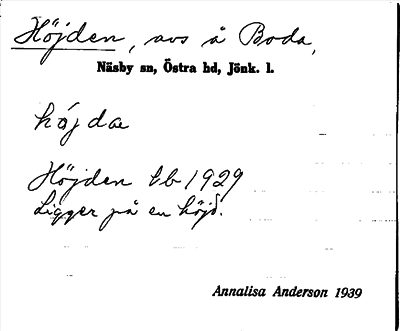 Höjden, avs å Boda,
Näsby sn, Östra hd, Jönk. l.
höjdae
Höjden tb 1929
Ligger på en höjd.
Annalisa Anderson 1939